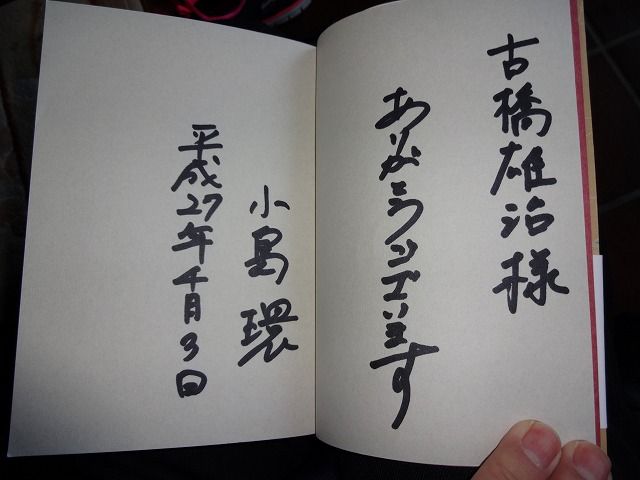 古橋雄治様
ありがとうございます
小島 環
平成27年4月3日